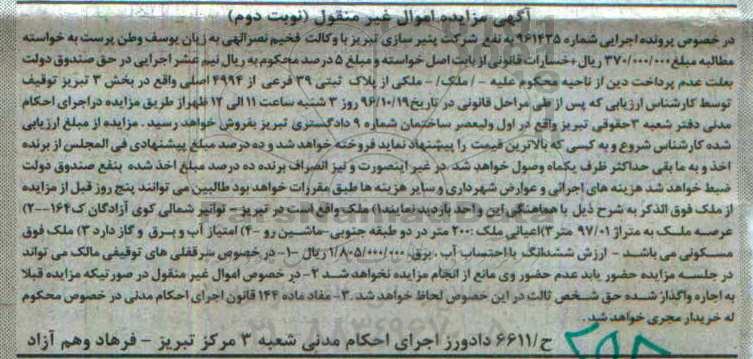 آگهی مزایده اموال غیر منقول (نوبت دوم)
در خصوص پرونده اجرایی شماره ۹۶۱۴۳۵ به نفع شرکت پنیر سازی تبریز با وکالت فخیم نصرالهی به زیان یوسف وطن پرست به خواسته
مطالبه مبلغ ۳۷۰/۰۰۰/۰۰۰ ریال+خسارات قانونی از بابت اصل خواسته و مبلغ ۵ درصد محکوم به ریال نیم عشر اجرایی در حق صندوق دولت
بعلت عدم پرداخت دین از ناحیه محکوم علیه - /ملک/ - ملکی از پلاک ثبتی ۳۹ فرعی از ۴۹۹۴ اصلی واقع در بخش ۳ تبریز توقیف
توسط کارشناس ارزیابی که پس از طی مراحل قانونی در تاریخ ۹۶/۱۰/۱۹ روز ۳ شنبه ساعت ۱۱ الی ۱۲ ظهر از طریق مزایده در اجرای احکام
مدنی دفتر شعبه ۳ حقوقی تبریز واقع در اول ولیعصر ساختمان شماره ۹ دادگستری تبریز بفروش خواهد رسید . مزایده از مبلغ ارزیابی
شده کارشناس شروع و به کسی که بالاترین قیمت را پیشنهاد نماید فروخته خواهد شد و ده درصد مبلغ پیشنهادی فی المجلس از برنده
اخذ و به ما بقی حداکثر ظرف یکماه وصول خواهد شد .در غیر اینصورت و نیز انصراف برنده ده درصد مبلغ اخذ شده بنفع صندوق دولت
ضبط خواهد شد هزینه های اجرائی و عوارض شهرداری و سایر هزینه ها طبق مقررات خواهد بود طالبین می توانند پنج روز قبل از مزایده
از ملک فوق الذکر به شرح ذیل با هماهنگی این واحد بازدید نمایند۱) ملک واقع است در تبریز - توانیر شمالی کوی آزادگان ک۱۶۴--۲)
عرصه ملک به متراژ ۹۷/۰۱ متر ۳)اعیانی ملک :۲۰۰ متر در دو طبقه جنوبی-ماشین رو -۴) امتیاز آب و برق و گاز دارد ۳) ملک فوق
مسکونی می باشد - ارزش ششدانگ با احتساب آب ، برق: ۱/۸۰۵/۰۰۰/۰۰۰ ریال ۱- در خصوص سرقفلی های توقیفی مالک می تواند
در جلسه مزایده حضور یابد عدم حضور وی مانع از انجام مزایده نخواهد شد ۲- در خصوص اموال غیر منقول در صورتیکه مزایده قبلا
به اجاره واگذار شده حق شخص ثالث در این خصوص لحاظ خواهد شد .۳- مفاد ماده ۱۴۴ قانون اجرای احکام مدنی در خصوص محکوم
له خریدار مجری خواهد شد .
ح/۶۶۱۱ دادورز اجرای احکام مدنی شعبه ۳ مرکز تبریز - فرهاد وهم آزاد